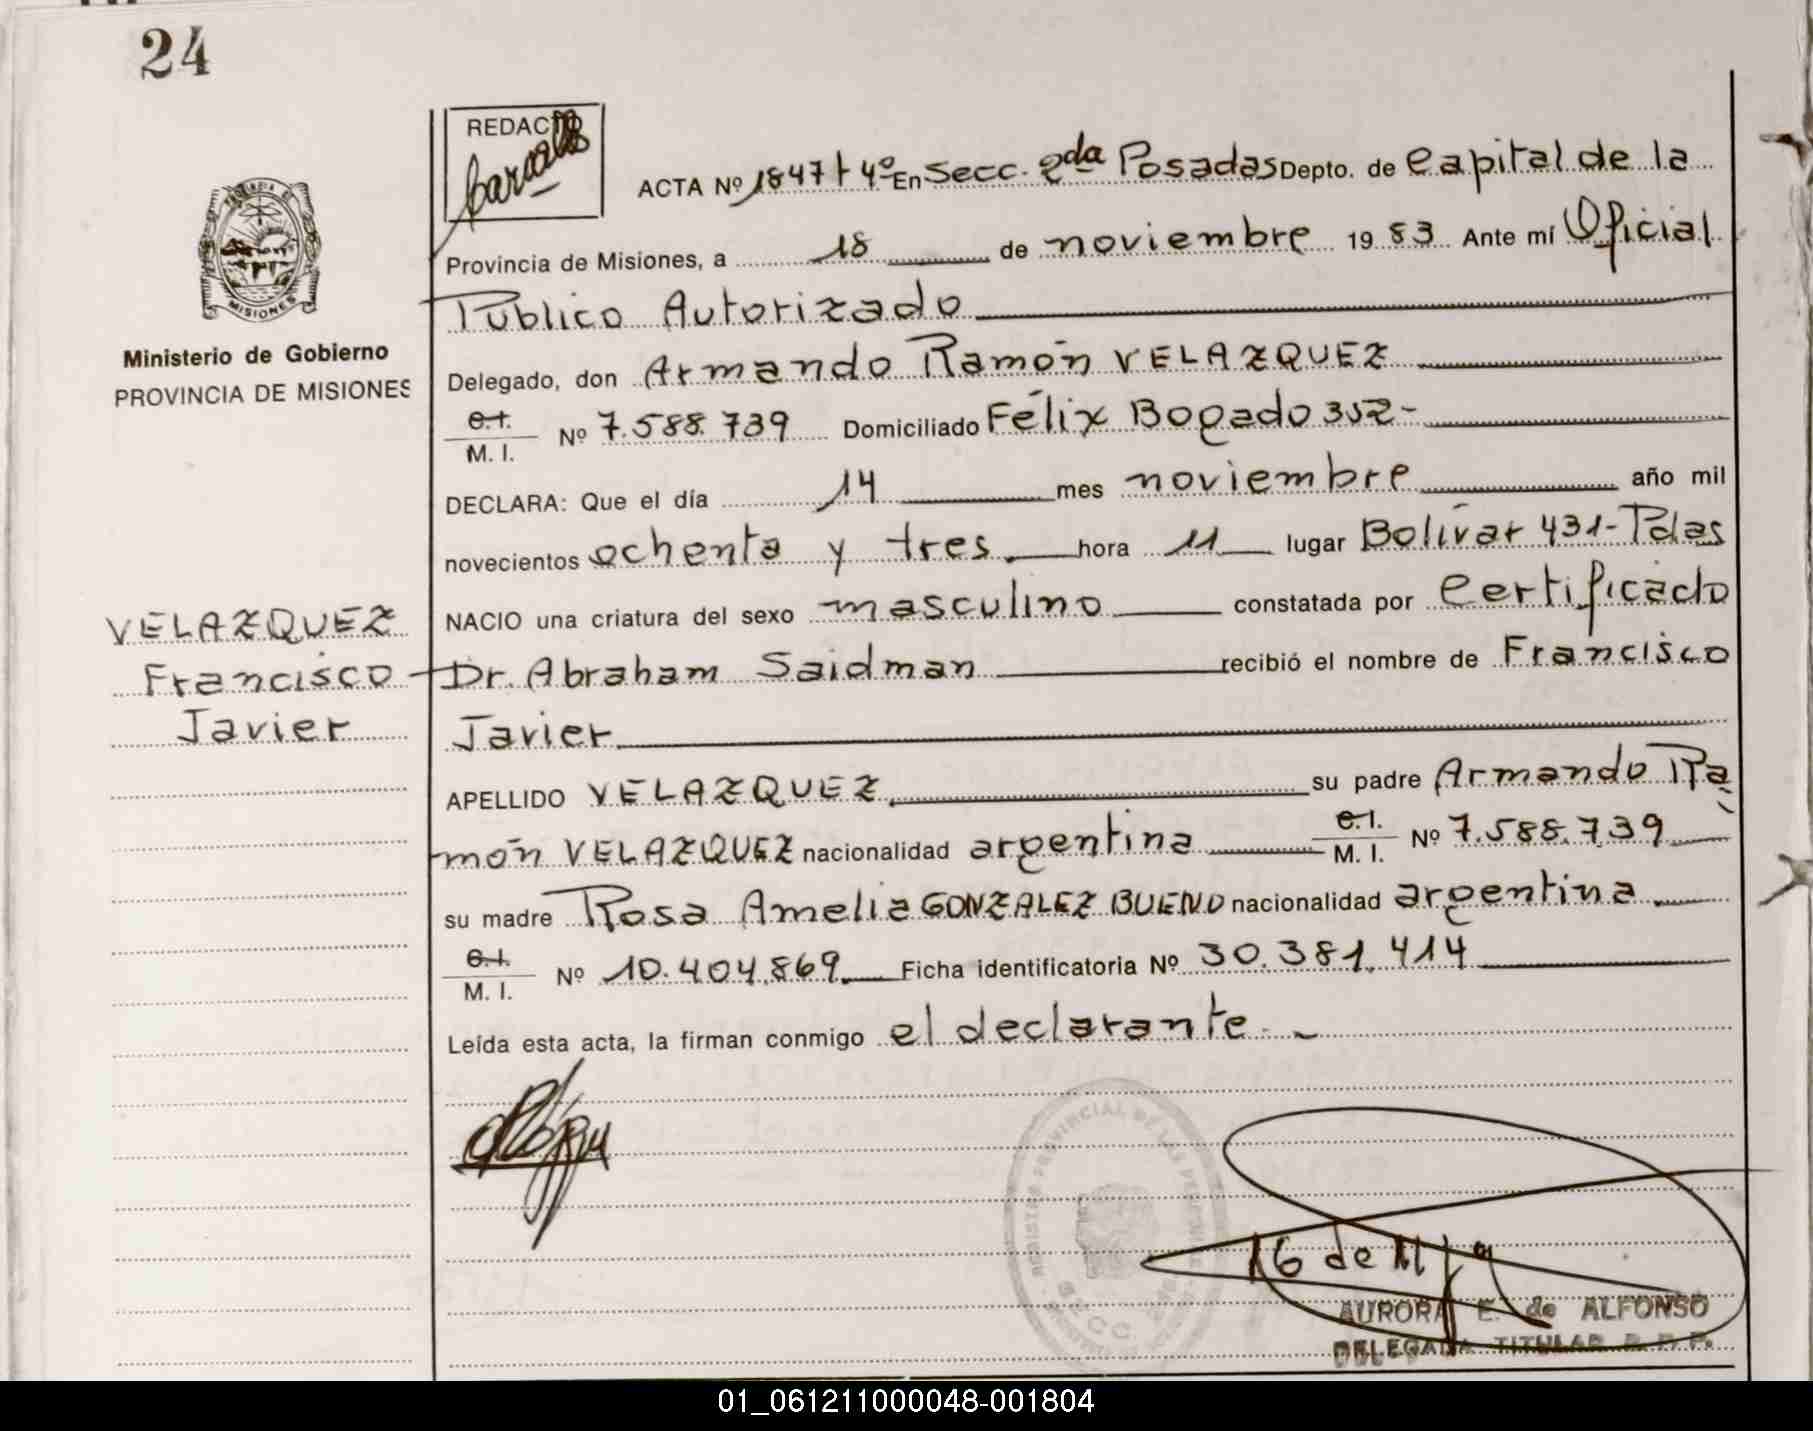 24
REDACTO
ACTA Nº 1847 t 4º En Secc. 2da Posadas Depto. de Capital de la
Provincia de Misiones, a 18 de noviembre 1983 Ante mí Oficial
Público Autorizado
Ministerio de Gobierno
PROVINCIA DE MISIONES
MISIONES
Delegado, don Armando Ramón VELAZQUEZ
C.I.
M. I. Nº 7.588.739 Domiciliado Félix Bogado 352-
DECLARA: Que el día 14 mes noviembre año mil
novecientos ochenta y tres hora 11 lugar Bolívar 431-Pdas
NACIO una criatura del sexo masculino constatada por Certificado
Dr. Abraham Saidman recibió el nombre de Francisco
Javier
VELAZQUEZ
Francisco
Javier
APELLIDO VELAZQUEZ su padre Armando Ra
món VELAZQUEZ nacionalidad argentina C.I.
M. I. Nº 7.588.739
su madre Rosa Amelia GONZALEZ BUENO nacionalidad argentina
C.I.
M. I. Nº 10.404.869 Ficha identificatoria Nº 30.381.414
Leída esta acta, la firman conmigo el declarante.
AURORA E. de ALFONSO
DELEGADA TITULAR R.P.P.
01_061211000048-001804